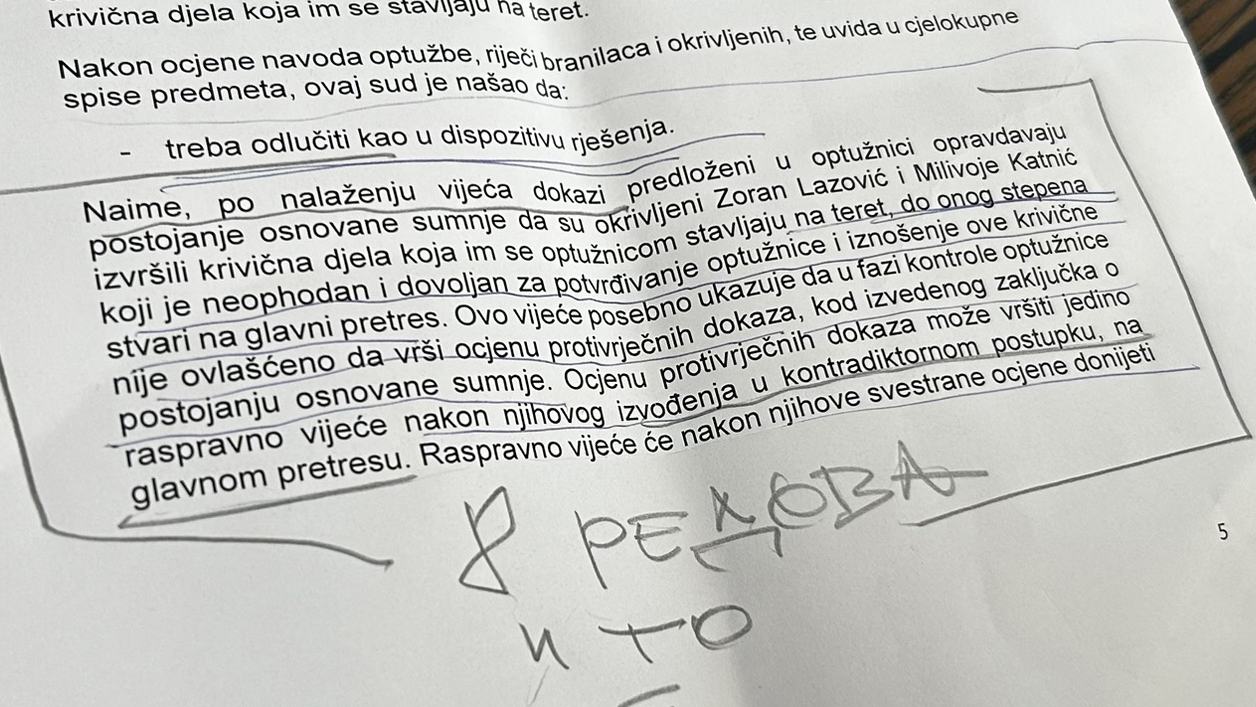 krivična djela koja im se stavljaju na teret.
Nakon ocjene navoda optužbe, riječi branilaca i okrivljenih, te uvida u cjelokupne
spise predmeta, ovaj sud je našao da:
- treba odlučiti kao u dispozitivu rješenja.
Naime, po nalaženju vijeća dokazi predloženi u optužnici opravdavaju
postojanje osnovane sumnje da su okrivljeni Zoran Lazović i Milivoje Katnić
izvršili krivična djela koja im se optužnicom stavljaju na teret, do onog stepena
koji je neophodan i dovoljan za potvrđivanje optužnice i iznošenje ove krivične
stvari na glavni pretres. Ovo vijeće posebno ukazuje da u fazi kontrole optužnice
nije ovlašćeno da vrši ocjenu protivrječnih dokaza, kod izvedenog zaključka o
postojanju osnovane sumnje. Ocjenu protivrječnih dokaza može vršiti jedino
raspravno vijeće nakon njihovog izvođenja u kontradiktornom postupku, na
glavnom pretresu. Raspravno vijeće će nakon njihove svestrane ocjene donijeti
8 РЕДОВА
и ТО
5